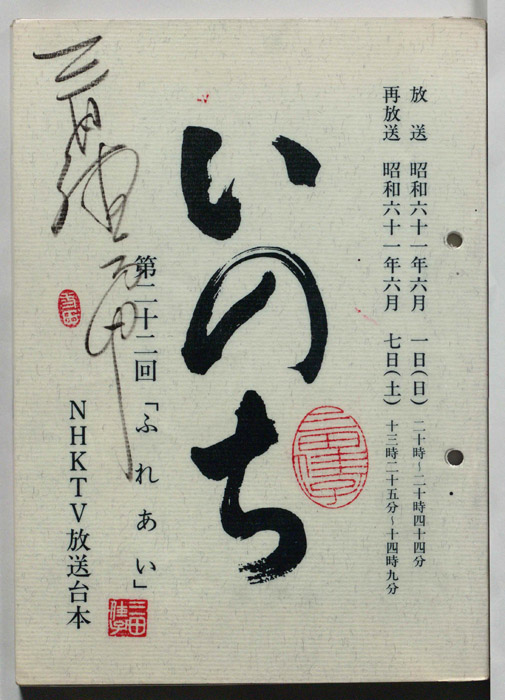 放送 昭和六十一年六月 一日(日) 二十時~二十時四十四分
再放送 昭和六十一年六月 七日(土) 十三時二十五分~十四時九分
いのち
第二十二回「ふれあい」
三田佳子
NHKTV放送台本